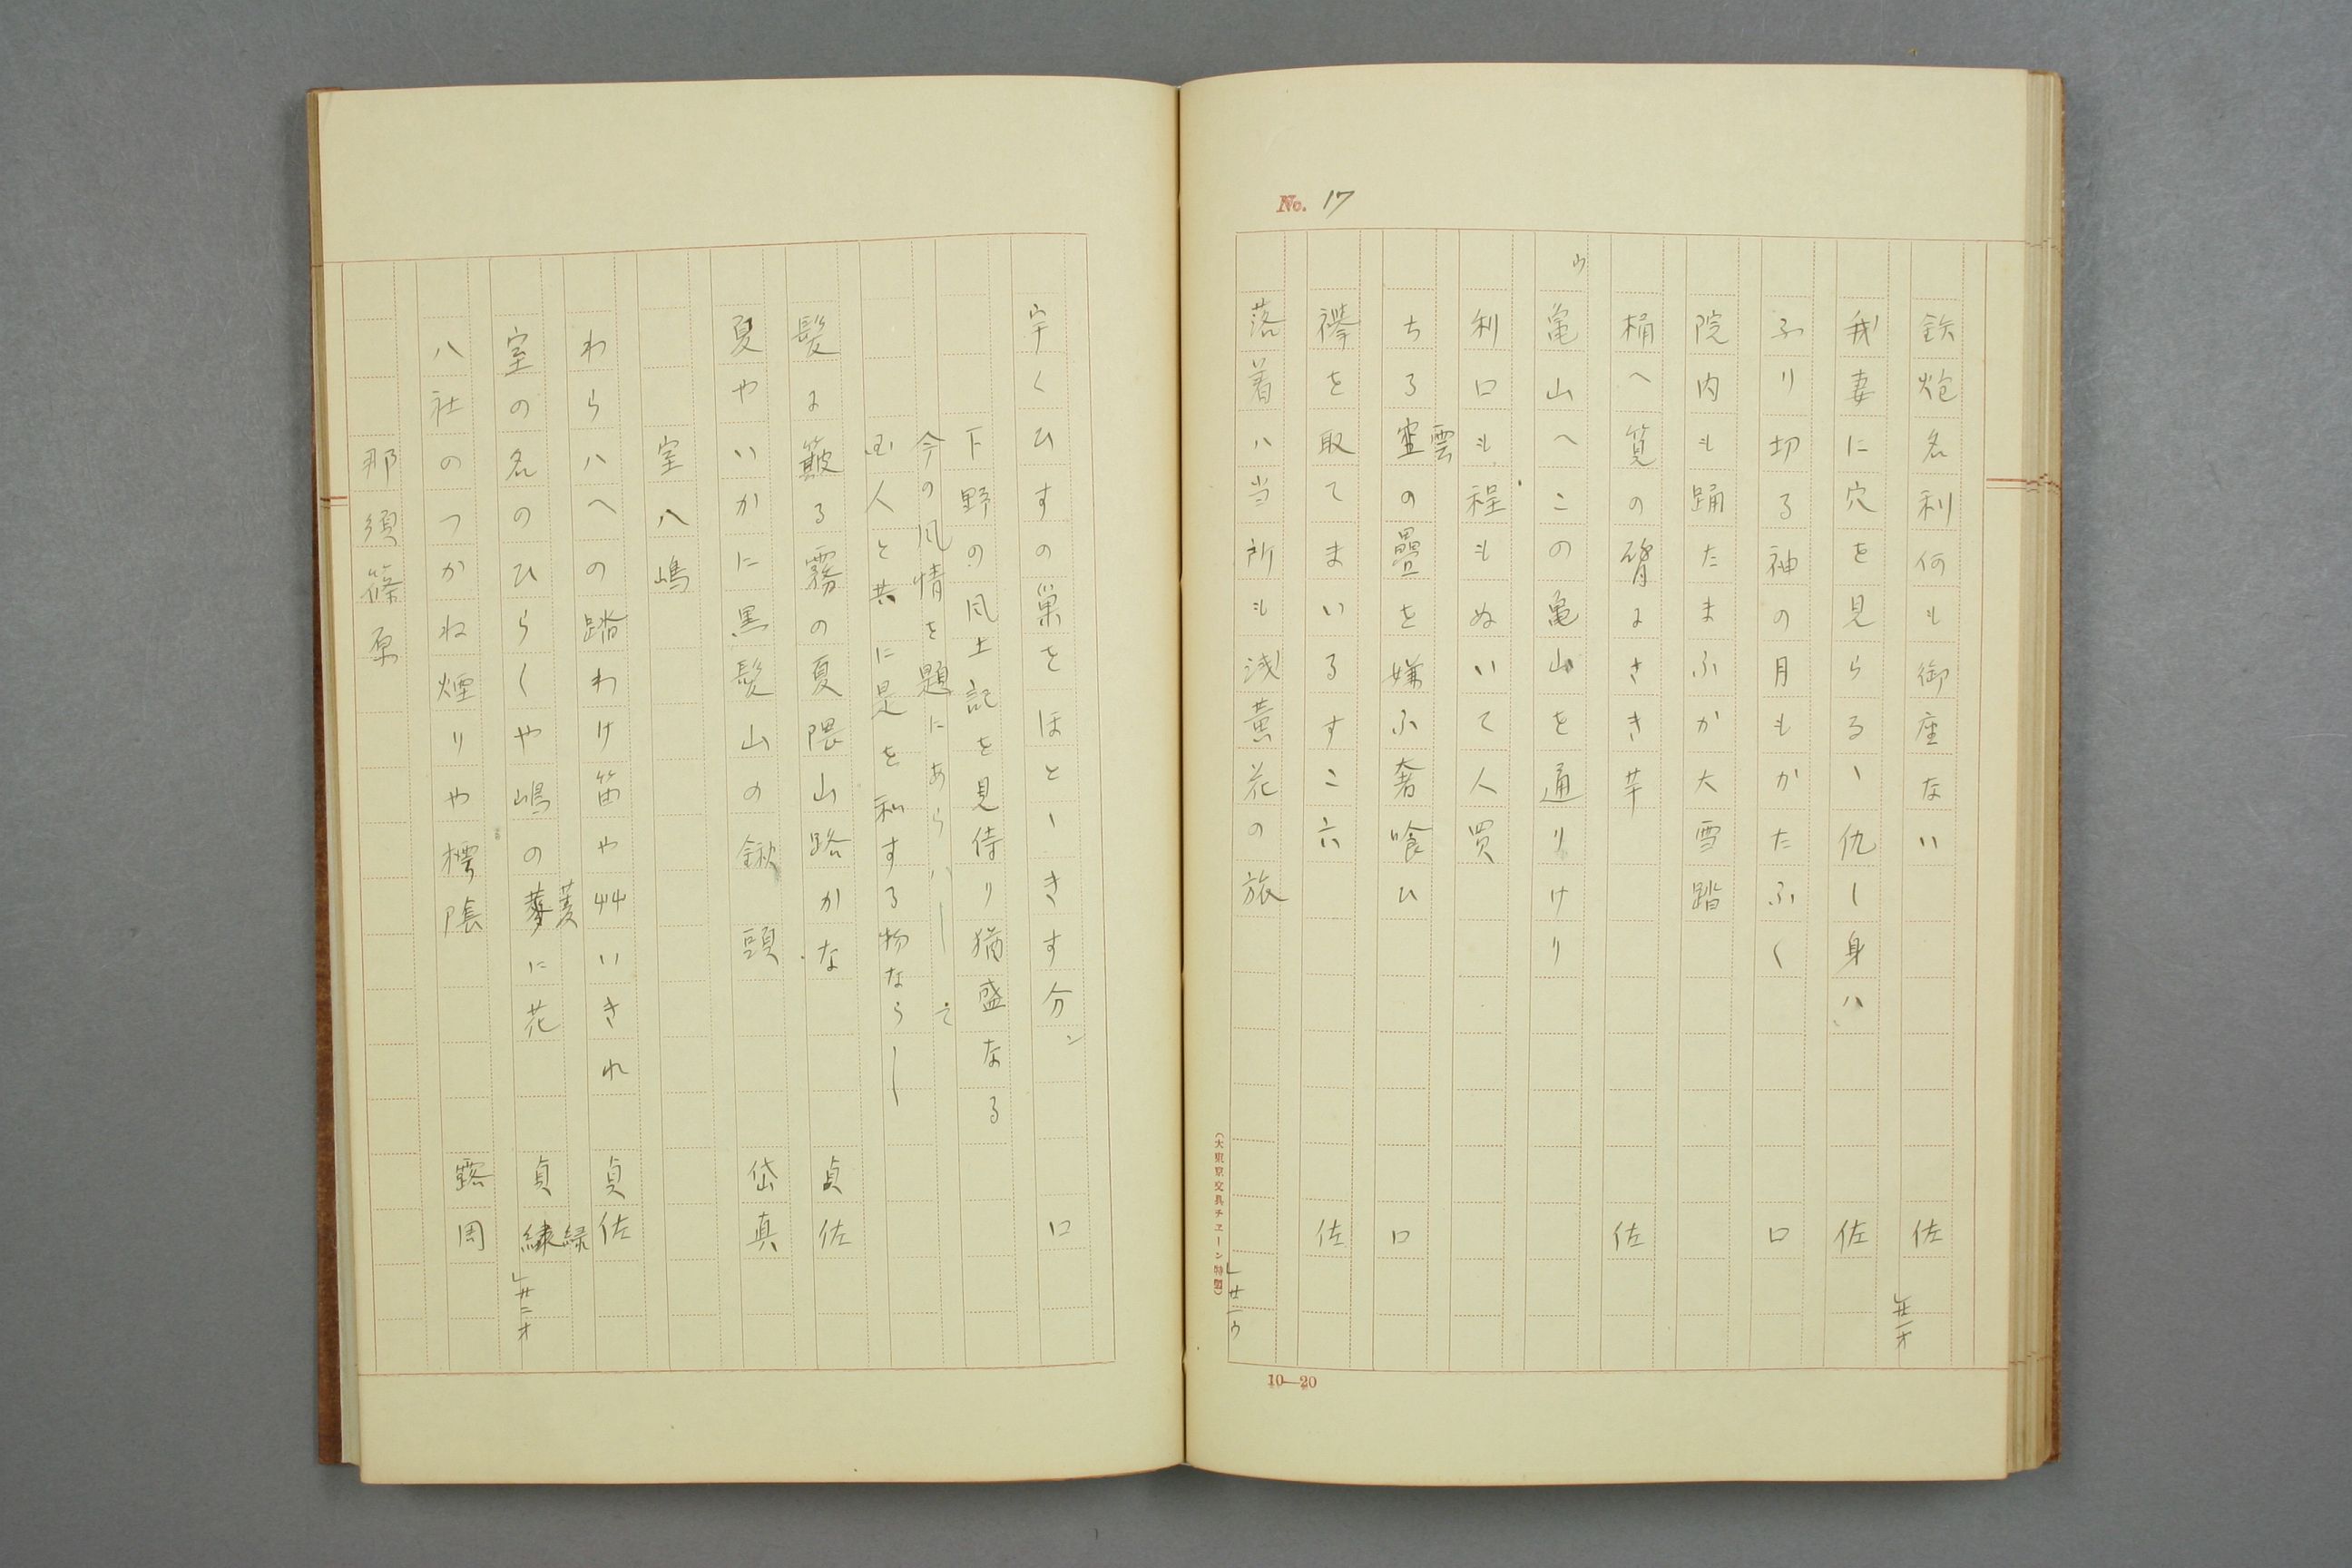 No. 17
鉄炮名利何も御座ない 佐
」廿一オ
我妻に穴を見らるゝ仇し身ハ 佐
ふり切る袖の月もかたふく 口
院内も踊たまふか大雪踏
桶へ筧の臂まさき芋 佐
ウ
亀山へこの亀山を通りけり
利口も程もぬいて人買
ちる霊の疊を嫌ふ奢喰ひ 口
雲
襷を取てまいるすこ六 佐
落着ハ当所も浅黄花の旅
」廿一ウ
(大東京文具チエーン特製)
10—20
宇くひすの巣をほとゝきす分ン 口
下野の風土記を見侍り猶盛なる
今の風情を題にあらハし そ
人と共に是を和する物ならし
髪に簸る霧の夏隈山路かな 貞佐
夏やいかに黒髪山の鍬頭 岱真
室八嶋
わらハへの踏わけ笛や艸いきれ 貞佐
室の名のひらくや嶋の蔆に花 貞緑
菱
緑
」廿二オ
八社のつかね煙りや樗陰 露周
那須篠原